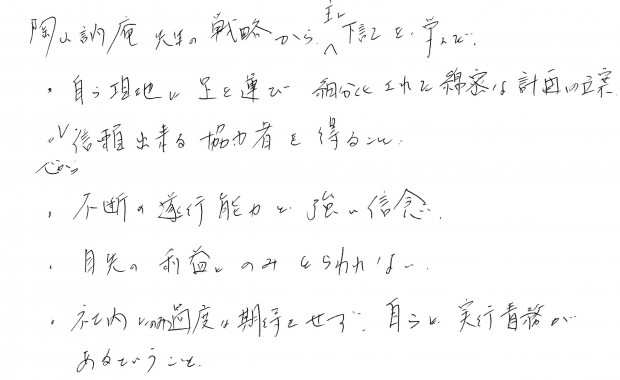 陶山訥庵先生の戦略から主に下記を学んだ.
・自ら現地に足を運び細分化された綿密な計画の立案
・心から信頼出来る協力者を得ること.
・不断の遂行能力と強い信念.
・目先の利益にのみとらわれない.
・社内にのみ過度な期待をせず、自らに実行責務が
あるということ.